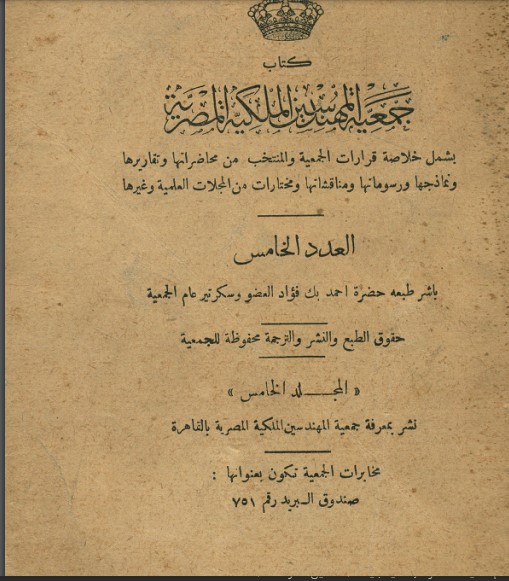 كتاب
جمعية المهندسين الملكية المصرية
يشمل خلاصة قرارات الجمعية والمنتخب من محاضراتها وتقاريرها
ونماذجها ورسوماتها ومناقشاتها ومختارات من المجلات العلمية وغيرها
العدد الخامس
باشر طبعه حضرة احمد بك فؤاد العضو وسكرتير عام الجمعية
حقوق الطبع والنشر والترجمة محفوظة للجمعية
« المجـلد الخامس »
نشر بمعرفة جمعية المهندسين الملكية المصرية بالقاهرة
مخابرات الجمعية تكون بعنوانها :
صندوق البريد رقم ٧٥١